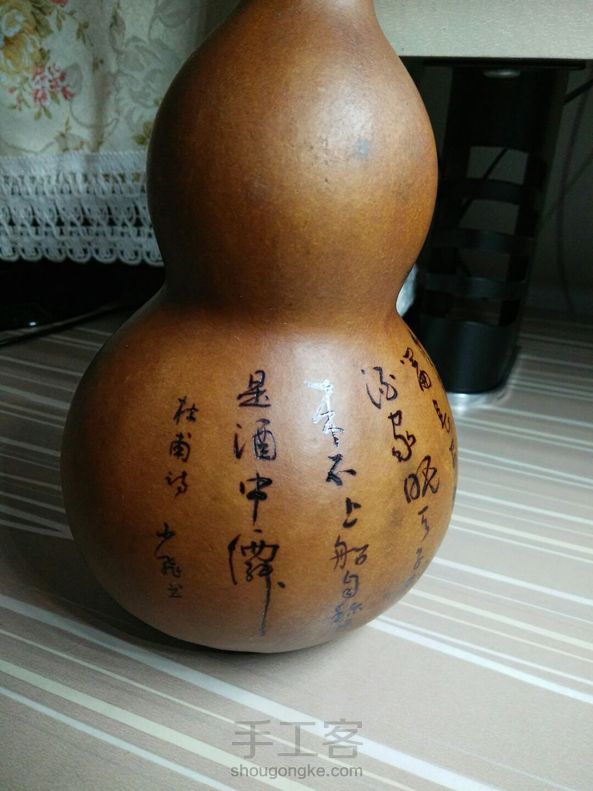 篇長
酒家眠天子
來不上船自称臣
是酒中僊
杜甫诗
手工客
shougongke.com